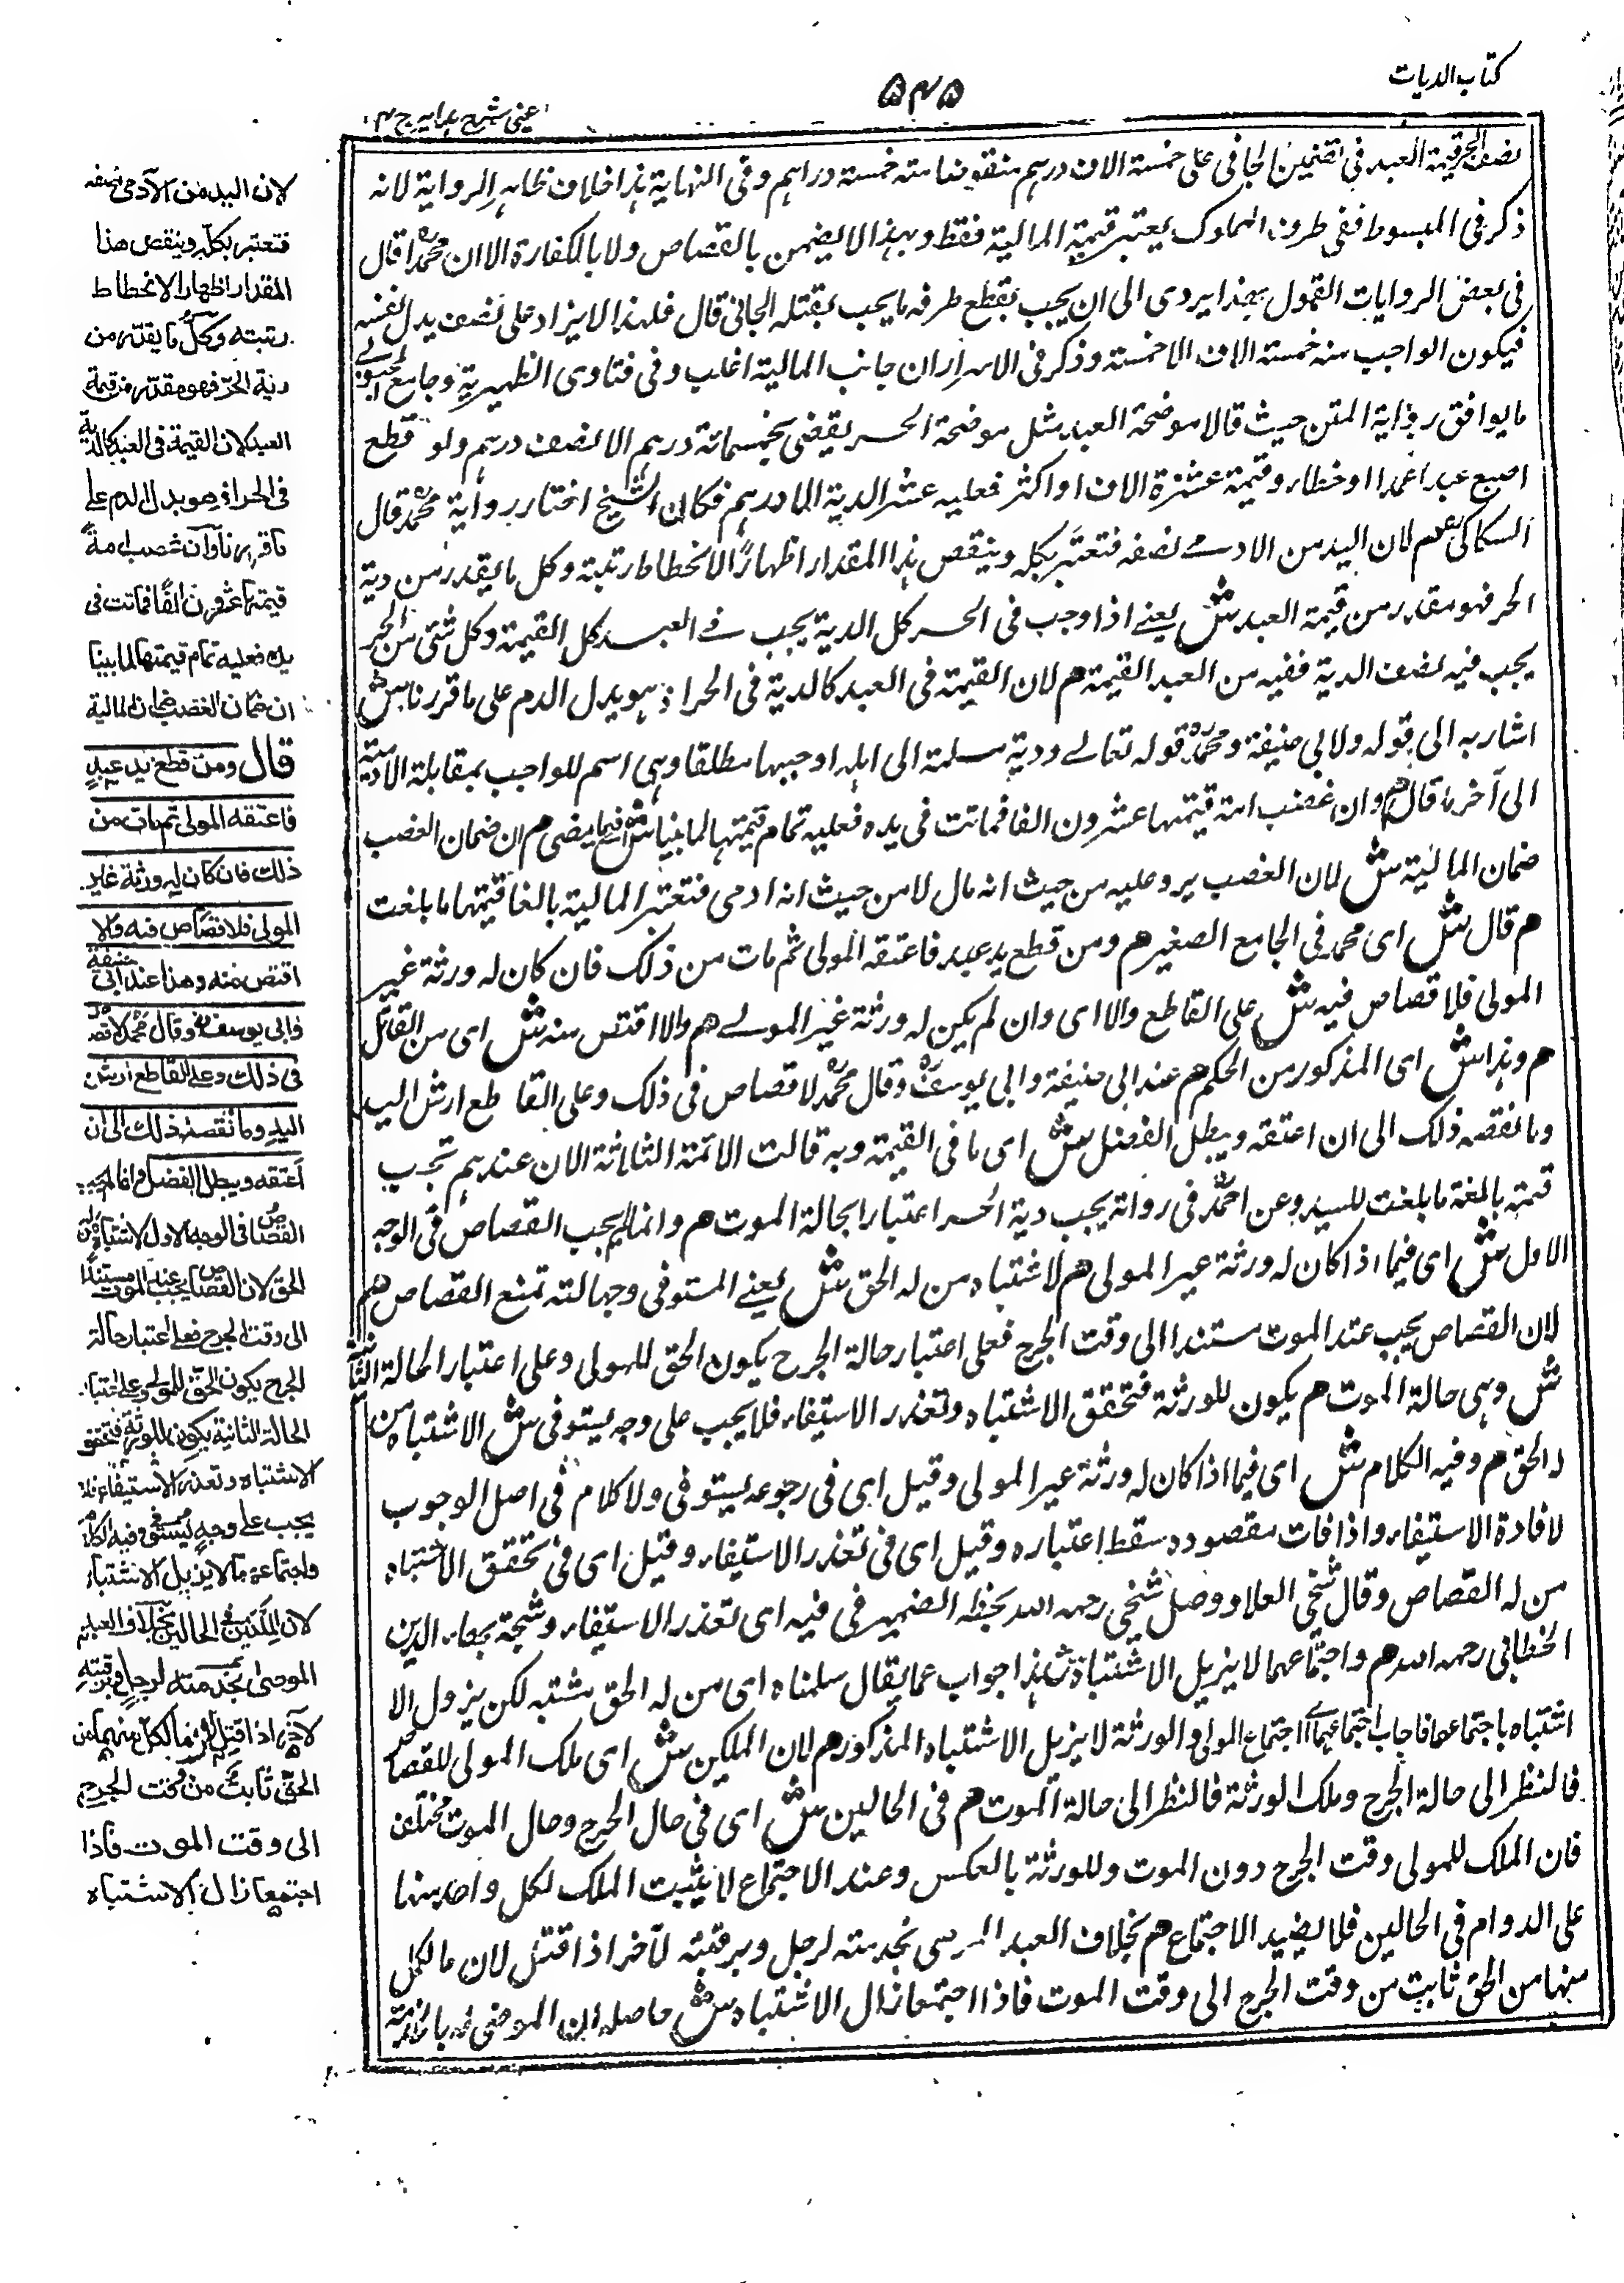 كتاب الديات
٥٤٥
عينى شرح هدايه ج ٤
قيمة العبد فى على خمسة الاف درهم خمسة دراهم وفى النهاية هذا خلاف ظاهر الرواية لانه
ذكر فى المبسوط ففى طرف المملوك يعتبر قيمة المالية فقط وبهذا لا يضمن بالقصاص ولا بالكفارة الا ان محمدا قال
فى بعض الروايات القول بهذا يودى الى ان يجب بقطع طرفه ما يجب بقتله الجانى قال فلهذا لا يزاد على نصف بدل نفسه
فيكون الواجب منه خمسة الاف الا خمسة وذكر فى الاسرار ان جانب المالية اغلب وفى فتاوى الظهيرية وجامع المحبوبى
ما يوافق رواية المتن حيث قالا موضحة العبد مثل موضحة الحر يقضى بخمسمائة درهم الا نصف درهم ولو قطع
اصبع عبد عمدا او خطاء وقيمة عشرة الاف او اكثر فعليه عشر الدية الا درهم فكان الشيخ اختار برواية محمد قال
السكاكى م لان اليد من الادمے نصفه فتعتبر بكله وينقص هذا المقدار اظهارًا لانحطاط رتبته وكل ما يقدر من دية
الحر فهو مقدر من قيمة العبد ش يعنے اذا وجب فى الحر كل الدية يجب فے العبد كل القيمة وكل شئ من الحر
يجب فيه نصف الدية ففيه من العبد القيمة هم لان القيمة فى العبد كالدية فى الحر اذ هو بدل الدم على ما قررناه ش
اشار به الى قوله ولابى حنيفة ومحمد قوله تعالے ودية مسلمة الى اهله اوجبها مطلقا وهى اسم للواجب بمقابلة الادمية
الى آخر ما قال هم وان غصب امة قيمتها عشرون الفا فماتت فى يده فعليه تمام قيمتها لما بينا ش فيما مضى هم ان ضمان الغصب
ضمان المالية ش لان الغصب يرد عليه من حيث انه مال لا من حيث انه ادمى فتعتبر المالية بالغا قيمتها ما بلغت
هم قال ش اى محمد فى الجامع الصغير هم ومن قطع يد عبد فاعتقه المولى ثم مات من ذلك فان كان له ورثة غير
المولى فلا قصاص فيه ش على القاطع والا اى وان لم يكن له ورثة غير المولے هم والا اقتص منه ش اى من القاتل
هم وهذا ش اى المذكور من الحكم هم عند ابى حنيفة وابى يوسف وقال محمد لا قصاص فى ذلك وعلى القاطع ارش اليد
وما نقصه ذلك الى ان اعتقه ويبطل الفضل ش اى ما فى القيمة وبه قالت الائمة الثلاثة الا ان عندهم تجب
قيمته بالغة ما بلغت للسيد وعن احمد فى رواية يجب دية الحر اعتبارا بحالة الموت هم وانما لم يجب القصاص فى الوجه
الاول ش اى فيما اذا كان له ورثة غير المولى هم لاشتباه من له الحق ش يعنے المستوفى وجهالته تمنع القصاص هم
لان القصاص يجب عند الموت مستندا الى وقت الجرح فعلى اعتبار حالة الجرح يكون الحق للمولى وعلى اعتبار الحالة الثانية
ش وهى حالة الموت هم يكون للورثة فتحقق الاشتباه وتعذر الاستيفاء فلا يجب على وجه يستوفى ش الاشتباه من
له الحق هم وفيه الكلام ش اى فيما اذا كان له ورثة غير المولى وقيل اى فى رجوعه يستوفى ولا كلام فى اصل الوجوب
لافادة الاستيفاء واذا فات مقصوده سقط اعتباره وقيل اى فى تعذر الاستيفاء وقيل اى فى تحقق الاشتباه
من له القصاص وقال شيخى العلا ووصل شيخى رحمه الله بخطه الضمير فى فيه اى تعذر الاستيفاء وشيخه بهاء الدين
الخطابى رحمه الله هم واجتماعهما لا يزيل الاشتباه ش هذا جواب عما يقال سلمناه اى من له الحق مشتبه لكن يزول الا
اشتباه باجتماعهما فاجاب اجتماعهما اى اجتماع المولى والورثة لا يزيل الاشتباه المذكور هم لان الملكين ش اى ملك المولى للقصاص
فالنظر الى حالة الجرح وملك الورثة فالنظر الى حالة الموت هم فى الحالين ش اى فى حال الجرح وحال الموت مختلف
فان الملك للمولى وقت الجرح دون الموت وللورثة بالعكس وعند الاجتماع لا يثبت الملك لكل واحد منهما
على الدوام فى الحالين فلا يفيد الاجتماع هم بخلاف العبد الموصى بخدمته لرجل وبرقبته لآخر اذا قتل لان ما لكل
منهما من الحق ثابت من وقت الجرح الى وقت الموت فاذا اجتمعا زال الاشتباه ش حاصله ان الموصى له بالخدمة
لان اليد من الآدمى نصفه
فتعتبر بكله وينقص هذا
المقدار اظهار الانحطاط
رتبته وكل ما يقدر من
دية الحر فهو مقدر من قيمة
العبد لان القيمة فى العبد كالدية
فى الحر اذ هو بدل الدم على
ما قررناه وان غصب امة
قيمتها عشرون الفا فماتت فى
يده فعليه تمام قيمتها لما بينا
ان ضمان الغصب ضمان المالية
قال ومن قطع يد عبد
فاعتقه المولى ثم مات من
ذلك فان كان له ورثة غير
المولى فلا قصاص فيه والا
اقتص منه وهذا عند ابى حنيفة
وابى يوسف وقال محمد لا قصاص
فى ذلك وعلى القاطع ارش
اليد وما نقصه ذلك الى ان
اعتقه ويبطل الفضل وانما لم يجب
القصاص فى الوجه الاول لاشتباه من له
الحق لان القصاص يجب عند الموت مستندا
الى وقت الجرح فعلى اعتبار حالة
الجرح يكون الحق للمولى وعلى اعتبار
الحالة الثانية يكون للورثة فتحقق
الاشتباه وتعذر الاستيفاء فلا
يجب على وجه يستوفى وفيه الكلام
واجتماعهما لا يزيل الاشتباه
لان الملكين فى الحالين بخلاف العبد
الموصى بخدمته لرجل وبرقبته
لآخر اذا قتل لان ما لكل منهما من
الحق ثابت من وقت الجرح
الى وقت الموت فاذا
اجتمعا زال الاشتباه